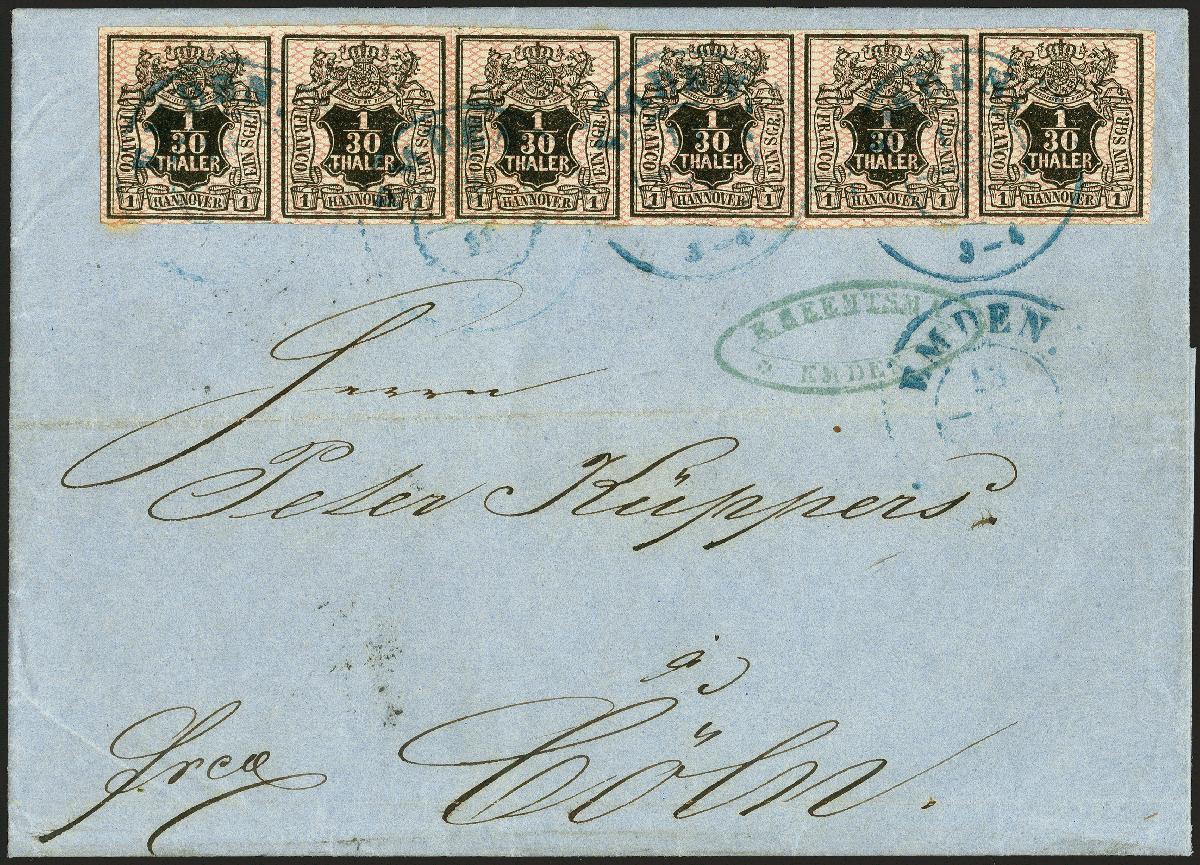 FRANCO 1/30 THALER EIN SGR.
1 HANNOVER 1
FRANCO 1/30 THALER EIN SGR.
1 HANNOVER 1
FRANCO 1/30 THALER EIN SGR.
1 HANNOVER 1
FRANCO 1/30 THALER EIN SGR.
1 HANNOVER 1
FRANCO 1/30 THALER EIN SGR.
1 HANNOVER 1
FRANCO 1/30 THALER EIN SGR.
1 HANNOVER 1
3-4
3-4
EMDEN
EMDEN.
18
Herrn
Peter Küppers.
in
Cöln.
frco